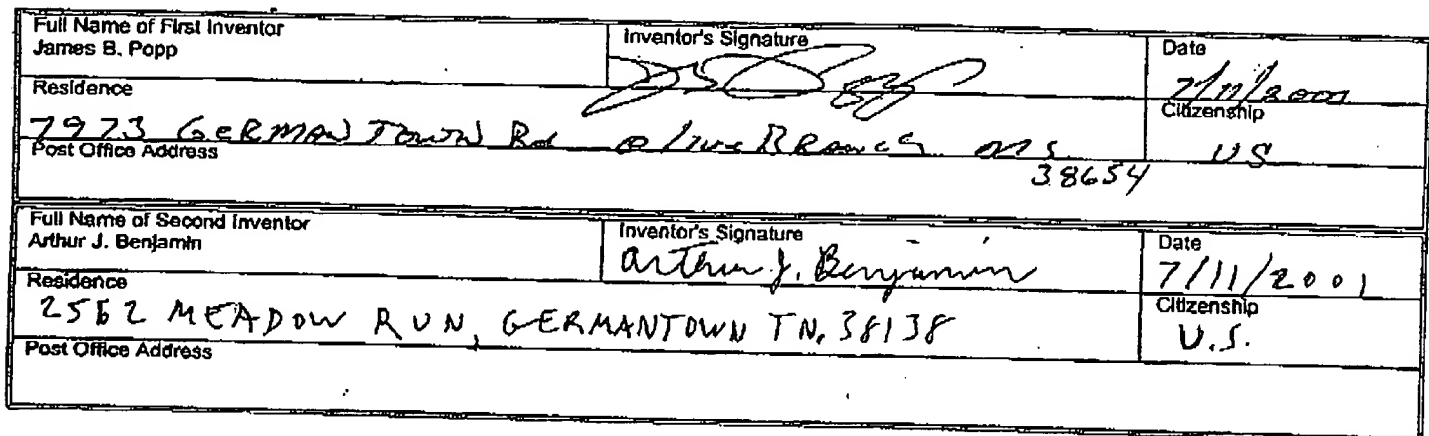 Full Name of First Inventor
James B. Popp
Inventor's Signature
Date
7/11/2001
Residence
7973 GERMANTOWN Rd olive BRanch MS.
38654
Citizenship
US
Post Office Address
Full Name of Second Inventor
Arthur J. Benjamin
Inventor's Signature
Arthur J. Benjamin
Date
7/11/2001
Residence
2562 MEADOW RUN, GERMANTOWN TN. 38138
Citizenship
U.S.
Post Office Address